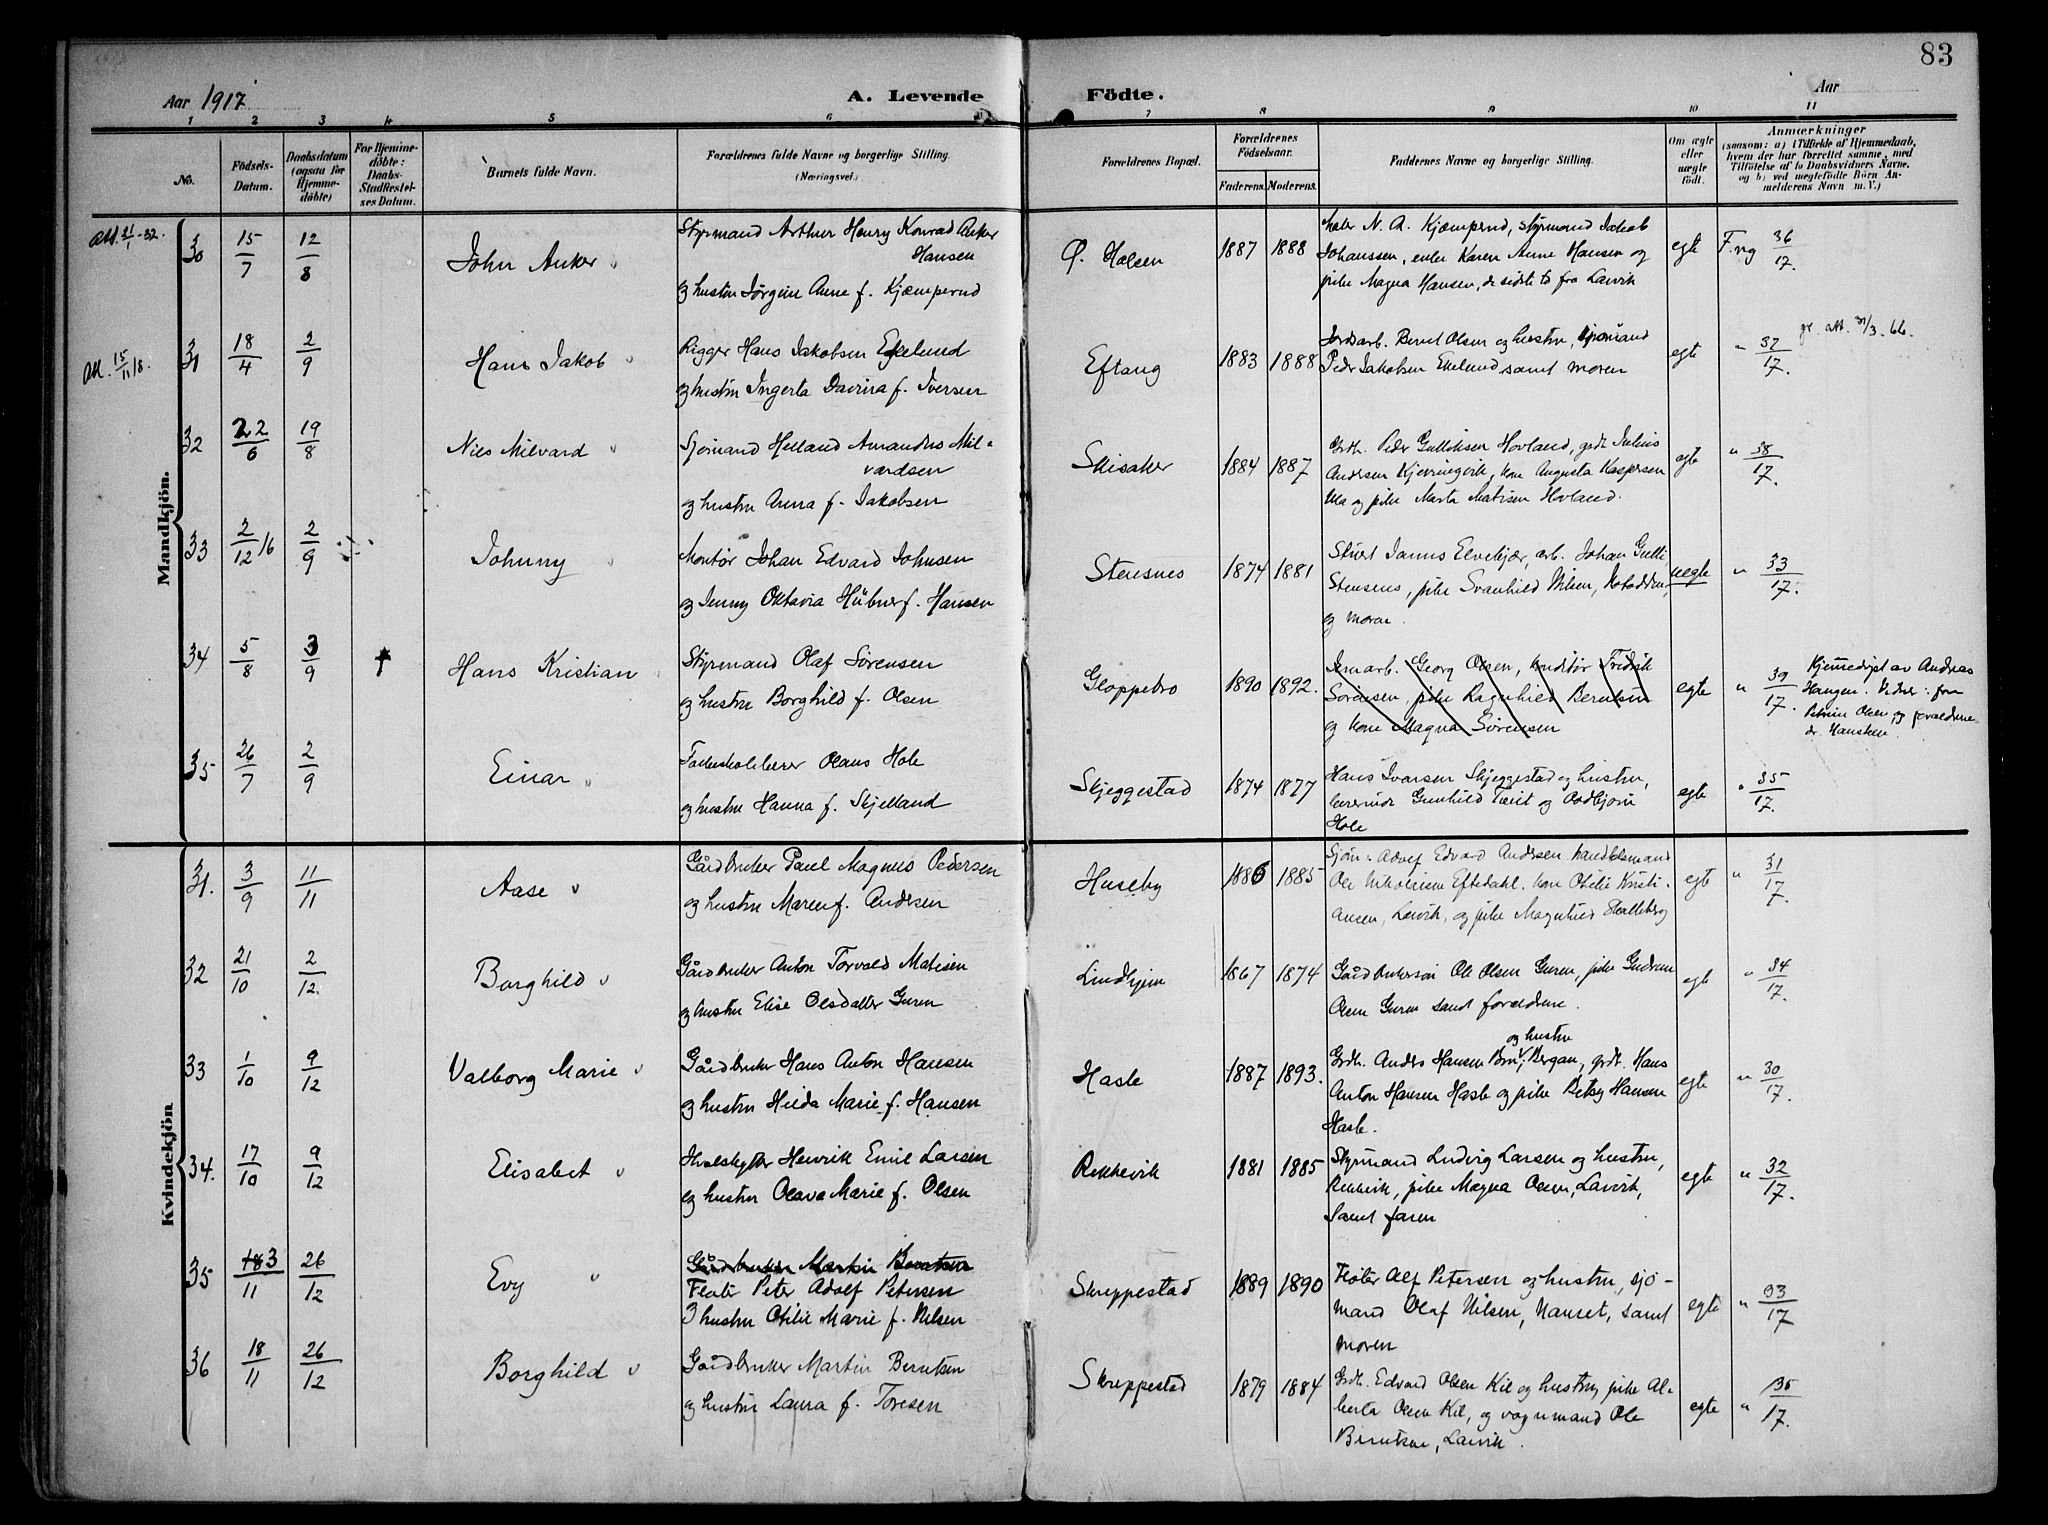 83
Aar 1917.
A. Levende Födte.
Aar
1 2 3 4 5 6 7 8 9 10 11
No.
Födsels-Datum.
Daabsdatum (ogsaa for Hjemmedöbte)
For Hjemmedöbte: Daabs-Stadfæstelses Datum.
Barnets fulde Navn.
Forældrenes fulde Navne og borgerlige Stilling.
(Næringsvei.)
Forældrenes Bopæl.
Forældrenes Födselsaar.
Faderens. Moderens.
Faddernes Navne og borgerlige Stilling.
Om ægte eller uægte født.
Anmærkninger
(saasom: a) i Tilfælde af Hjemmedaab,
hvem der har forrettet samme, med
Tilföielse af to Daabsvidners Navne.
og b) ved uægtefödte Börn An-
melderens Navn m. V.)
Mandkjön.
att. 21/1-32.
30 15/7 12/8 John Anker
Styrmand Arthur Henry Konrad Anker
Hansen
og hustru Jörgine Anne f. Kjæmperud
Ø. Halsen 1887 1888
N. A. Kjæmperud, styrmand Jakob
Johanssen, enke Karen Anne Hansen og
pike Magna Hansen, de sidste to fra Larvik
egte F. reg 36/17.
att. 15/11 18.
31 18/4 2/9 Hans Jakob
Rigger Hans Jakobsen Ekelund
og hustru Ingerta Davina f. Iversen
Eftang 1883 1888
Jordarb. Bernt Olsen og hustru, sjömand
Peder Jakobsen Ekelund samt moren
egte " 37/17. att. 31/3.66.
32 22/6 19/8 Nils Milvard
Sjömand Helland Amandus Mil-
vardsen
og hustru Anna f. Jakobsen
Skisaker 1884 1887
Grdb. Peder Gulliksen Hovland, grdt. Julius
Andersen Kjerringvik, kone Augusta Kaspersen
Ula og pike Marta Matisen Hovland.
egte " 38/17.
33 2/12 16 2/9 Johnny
Montør Johan Edvard Johnsen
og Jenny Oktavia Hübner f. Hansen
Stensnes 1874 1881
Janus Elvekjær, arb. Johan Gulli
Stensnes, pike Svanhild Nilsen,
og moren.
uegte " 33/17.
34 5/8 3/9 † Hans Kristian
Styrmand Olaf Sörensen
og hustru Borghild f. Olsen
Gloppebro 1890 1892.
Jernarb. Georg Olsen, konditör Fredrik
Sörensen, pike Ragnhild Berntsen
og kone Magna Sörensen
egte " 39/17. Hjemmedöpt av Andreas
Haugen. Vidner: fru
Petrine Olsen, og forældrene
35 26/7 2/9 Einar
Folkeskolelærer Olaus Hole
og hustru Hanna f. Skjelland
Skjeggestad 1874 1877
Hans Ivarsen Skjeggestad og hustru,
lærerinde Gunhild Tveit og Oddbjörn
Hole
egte " 35/17.
Kvindekjön
31. 3/9 11/11 Aase
Gårdbruker Paul Magnus Pedersen
og hustru Maren f. Andersen
Huseby 1886 1885
Sjöm. Adolf Edvard Andersen, handelsmand
Ole Nikolaisen Eftedahl, kone Otilie Kristi-
ansen, Larvik, og pike Magnhild Skalleberg
egte " 31/17.
32 21/10 2/12. Borghild
Gårdbruker Anton Torvald Matisen
og hustru Elise Olsdatter Guren
Lindhjem 1867 1874
Gårdbrukersön Ole Olsen Guren, pike Gudrun
Olsen Guren samt foreldrene.
egte " 34/17.
33 1/10 9/12 Valborg Marie
Gårdbruker Hans Anton Hansen
og hustru Hilda Marie f. Hansen
Hasle 1887 1893.
og hustru
Grdb. Anders Hansen Bergan, grdt. Hans
Anton Hansen Hasle og pike Betsy Hansen
Hasle.
egte " 30/17.
34. 17/10 9/12 Elisabet
Hvalskytter Henrik Emil Larsen
og hustru Olava Marie f. Olsen
Rekkevik 1881 1885
Styrmand Ludvig Larsen og hustru,
Rekkevik, pike Magna Olsen, Larvik,
samt faren
egte " 32/17.
35 183/11 26/12 Evy
Gårdbruker Martin Berntsen
Fløter Peter Adolf Petersen
og hustru Otilie Marie f. Nilsen
Skreppestad 1889 1890
Fløter Alf Petersen og hustru, sjö-
mand Olaf Nilsen, Nanset, samt
moren
egte " 93/17
36 18/11 26/12 Borghild
Gårdbruker Martin Berntsen
og hustru Laura f. Toresen
Skreppestad 1879 1884
Grdb. Edvard Olsen Kil og hustru, pike Al-
berta Olsen Kil, og vognmand Ole
Berntsen, Larvik.
egte " 35/17.